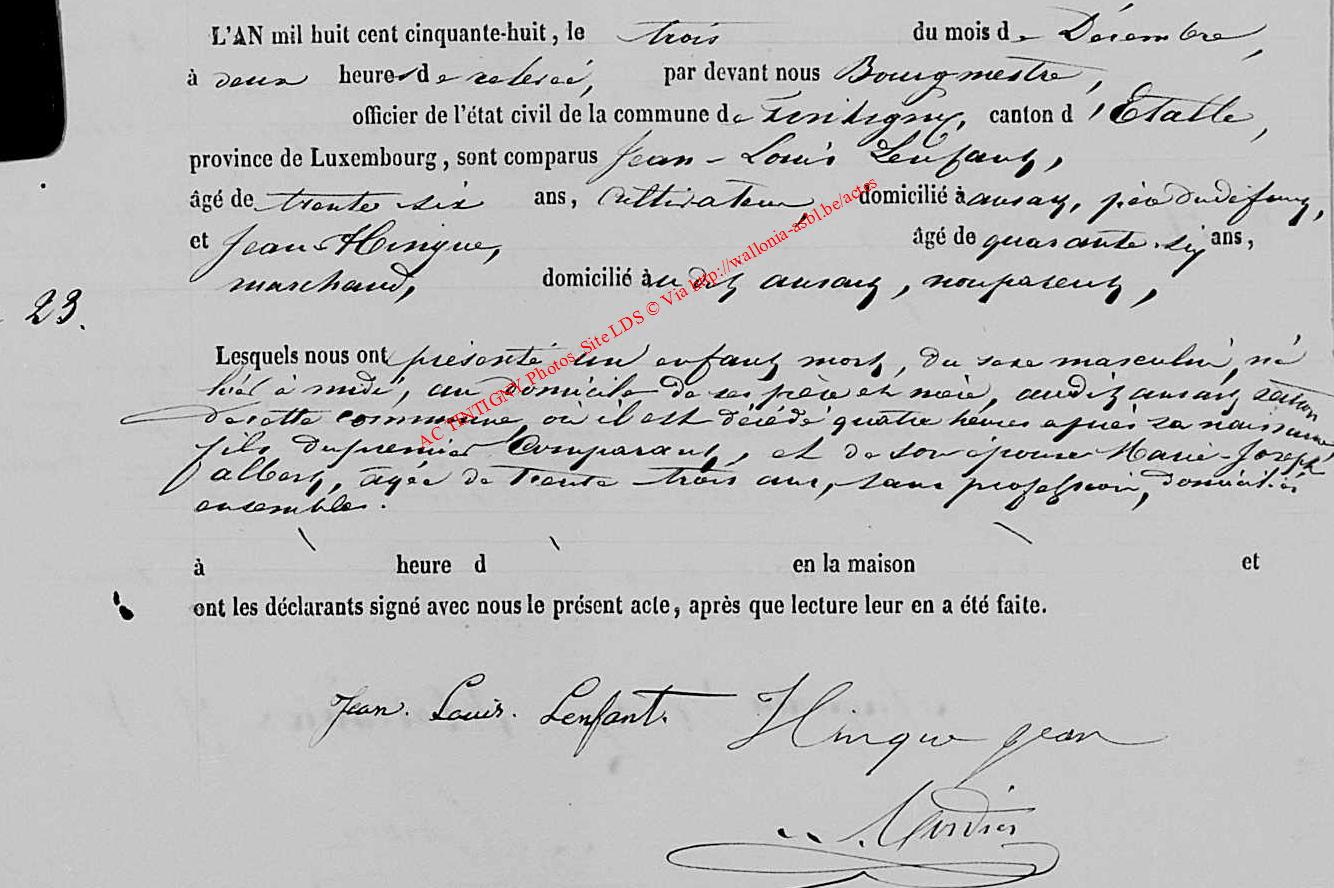 L'AN mil huit cent cinquante-huit, le trois du mois de Décembre,
à deux heures de relevée, par devant nous Bourgmestre,
officier de l'état civil de la commune de Tintigny, canton d'Etalle,
province de Luxembourg, sont comparus Jean-Louis Lenfant,
âgé de trente six ans, cultivateur, domicilié à ansart, père du défunt,
et Jean Hinque, âgé de quarante six ans,
marchand, domicilié à udit ansart, non parent,
23.
Lesquels nous ont présenté un enfant mort, du sexe masculin, né
hier à midi, au domicile de ses père et mère, audit ansart section
de cette commune, où il est décédé quatre heures après sa naissance,
fils du premier Comparant, et de son épouse Marie-Joseph
albert, agée de trente trois ans, sans profession, domiciliés
ensembles.
à heure d en la maison et
ont les déclarants signé avec nous le présent acte, après que lecture leur en a été faite.
Jean. Louis. Lenfant. Hinque jean
AC TINTIGNY Photos Site LDS © Via http://wallonia-asbl.be/actes